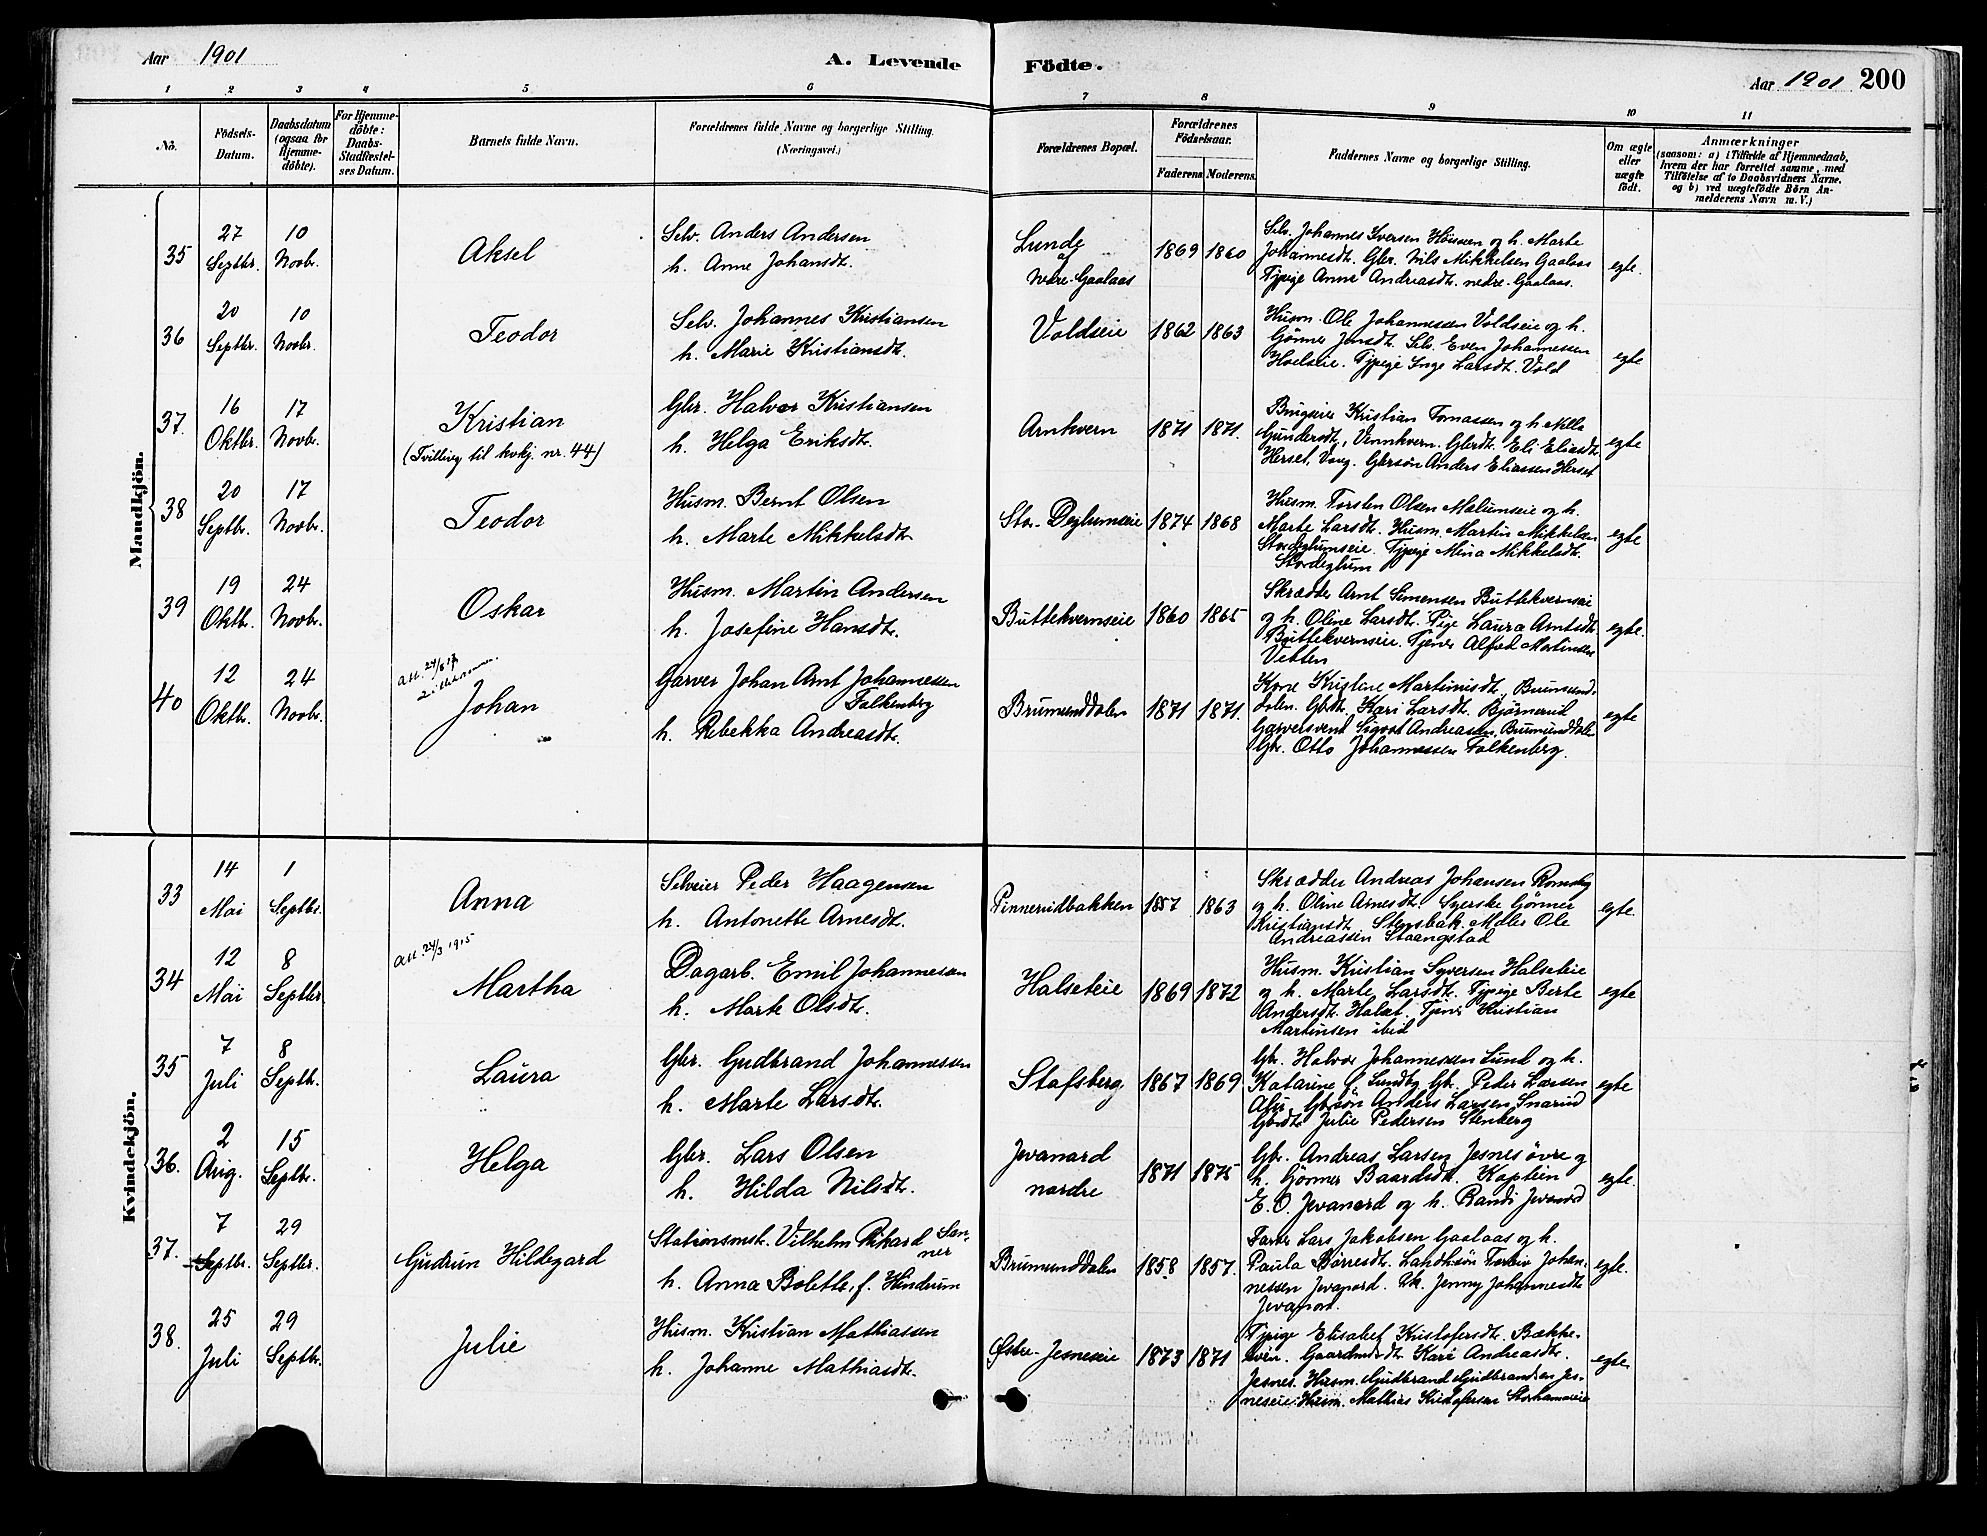 Aar 1901
A. Levende Födte.
Aar 1901 200
1 2 3 4 5 6 7 8 9 10 11
No.
Födsels-
Datum.
Daabsdatum
(ogsaa for
Hjemme-
döbte).
For Hjemme-
döbte:
Daabs-
Stadfæstel-
ses Datum.
Barnets fulde Navn.
Forældrenes fulde Navne og borgerlige Stilling.
(Næringsvei.)
Forældrenes Bopæl.
Forældrenes
Födselsaar.
Faderens Moderens
Faddernes Navne og borgerlige Stilling.
Om ægte
eller
uægte
födt.
Anmærkninger
(saasom: a) i Tilfælde af Hjemmedaab,
hvem der har forrettet samme, med
Tilföielse af to Daabsvidners Navne,
og b) ved uægtefödte Börn An-
melderens Navn m. V.)
Mandkjön.
35
27
Septbr.
10
Novbr.
Aksel
Selv. Anders Andersen
h. Anne Johansdt.
Lunde
af
Nedre-Gaalaas
1869 1860
Selv. Johannes Iversen og h. Marte
Johannesdt. Gbr. Nils Mikkelsen Gaalaas
Tjpige Anne Andreasdt. nedre-Gaalaas.
egte.
36
20
Septbr.
10
Novbr.
Teodor
Selv. Johannes Kristiansen
h. Marie Kristiansdt.
Voldseie
1862 1863
Husm. Ole Johannessen Voldseie og h.
Gönner Jensdt. Selv. Even Johannessen
Hoelseie. Tjpige Inge Larsdt. Vold
egte
37.
16
Oktbr.
17
Novbr.
Kristian
(Tvilling til kvkj. nr. 44)
Gbr. Halvor Kristiansen
h. Helga Eriksdt.
Arnkvern
1871 1871.
Brugseier Kristian Tomassen og h Nille
Gundersdt, Vennkvern. Gbrdt. Eli Eliasdt.
Herset, Vang. Gbrsön Anders Eliassen Herset
egte
38
20
Septbr.
17
Novbr.
Teodor
Husm. Bernt Olsen
h. Marte Mikkelsdt.
Stor-Deglumseie
1874 1868
Husm. Torsten Olsen Malumseie og h.
Marte Larsdt. Husm. Martin Mikkelsen
Stordeglumseie. Tjpige Mina Mikkelsdt.
Stordeglum
egte
39
19
Oktbr.
24
Novbr.
Oskar
Husm. Martin Andersen
h. Josefine Hansdt.
Buttekvernseie
1860 1865
Skrædder Arnt Simensen Buttekvernseie
og h. Oline Larsdt. Pige Laura Arntsdt
Buttekvernseie. Tjener Alfred Martinsen
Vetten
egte.
40
12
Oktbr.
24
Novbr.
att. 24/8 17
Johan
Garver Johan Arnt Johannessen
Falkenberg
h. Rebekka Andreasdt.
Brumunddalen
1871 1871.
Kone Kristine Martinusdt. Brumund-
dalen. Gbdt. Kari Larsdt. Björnerud
Garversvend Sigvart Andreassen, Brumunddalen
Gbr. Otto Johannessen Falkenberg.
egte
Kvindekjön.
33
14
Mai
1
Septbr.
Anna
Selveier Peder Haagensen
h. Antonette Arnesdt.
Pinnerudbakken
1857 1863
Skrædder Andreas Johansen Romsby
og h. Oline Arnesdt. Syerske Gönner
Kristiansdt. Stensbak. Maler Ole
Andreassen Staangstad
egte.
34
12
Mai
8
Septbr
att. 24/3 1915
Martha
Dagarb. Emil Johannessen
h. Marte Olsdt.
Halseteie
1869 1872
Husm. Kristian Syversen Halseteie
og h. Marte Larsdt. Tjpige Berte
Andersdt. Halset. Tjener Kristian
Martinsen ibid
egte
35
7
Juli
8
Septbr.
Laura
Gbr. Gudbrand Johannessen
h. Marte Larsdt.
Stafsberg
1867 1869
Gbr. Halvor Johannessen Lund og h.
Katarine f. Lundby Gbr. Peder Larsen
Alu Gbrsön Anders Larsen Snarud
Gbrdt. Julie Pedersen Stenberg
egte
36.
2
Aug.
15
Septbr.
Helga
Gbr. Lars Olsen
h. Hilda Nilsdt.
Jevanord
nordre
1871 1875
Gbr. Andreas Larsen Jesnes övre og
h. Gönner Baardsdt. Kaptein
E. O. Jevanord og h. Randi Jevanord
egte.
37.
7
Septbr.
29
Septbr.
Gudrun Hildegard
Stationsmstr. Vilhelm Rikard San-
ner
h. Anna Bolette, f. Hindrum
Brumunddalen
1858 1857.
Farver Lars Jakobsen Gaalaas og h.
Paula Börresdt. Landhsön Torleiv Johan-
nessen Jevanord. Frk. Jenny Johannesdt
Jevanord.
egte.
38.
25
Juli
29
Septbr.
Julie
Husm. Kristian Mathiassen
h. Johanne Mathiasdt.
Östre-Jesneseie
1873 1871
Tjpige Elisabet Kristofersdt. Bække-
sven. Gaardmdsdt Kari Andreasdt.
Jesnes. Husm. Gudbrand Gudbrandsen Jes-
neseie. Husm. Mathias Kristofersen Storhamareie
egte